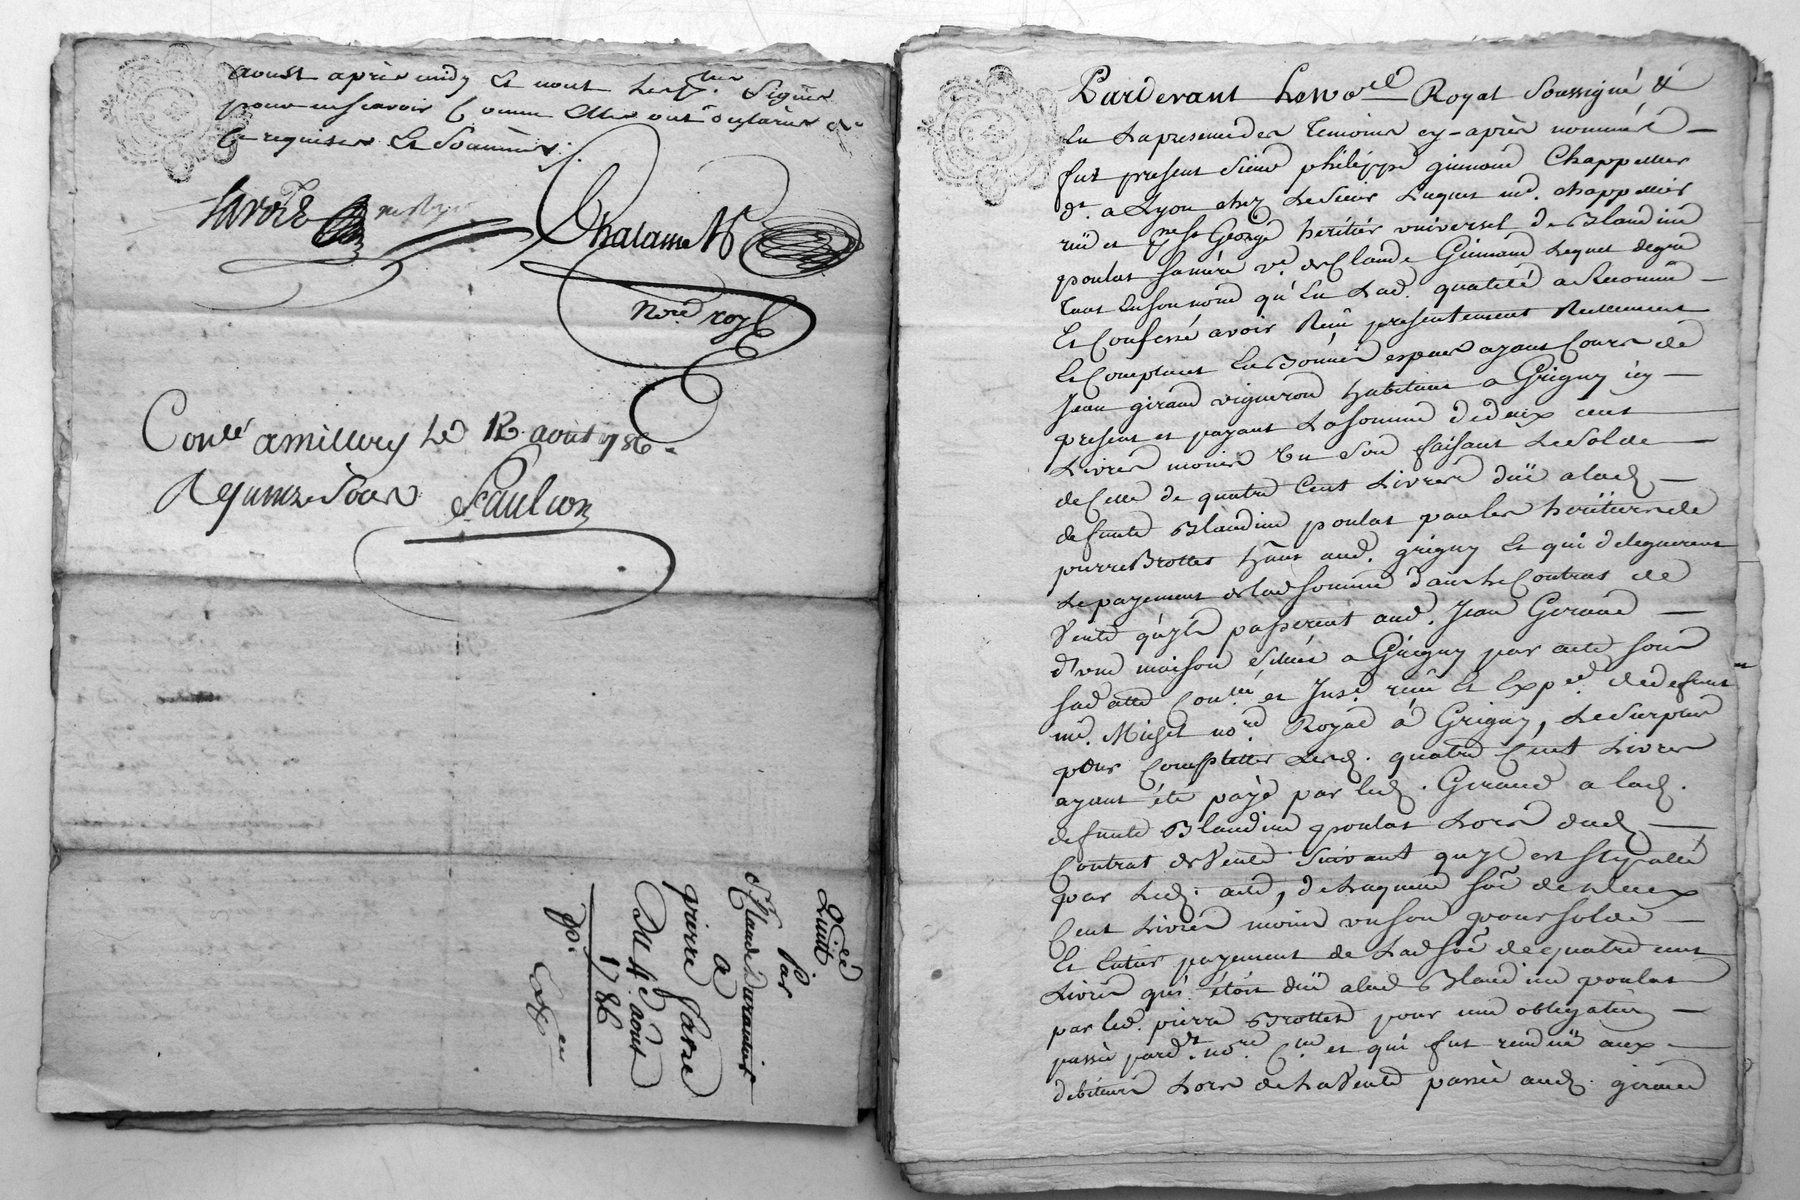 aoust après midy et nont lesp. signer
pour ne scavoir comme elles ont déclarées de
ce requises et sommées.
Chalamel
No.re roy.l
Con.lé a millery le 12 août 786
Reçu quinze sous Paulson
Quitt.ce
Par
Claude
a
pierre favre
Du 4.e août
1786
Exp.
Pardevant Le No.re Royal Soussigné &
En La presence des Temoins cy-après nommés
fut present Sieur philippe gimond Chappellier
dt. a Lyon chez Le Sieur Luquet md. chappellier
ruë et St George heritier universel de Blandine
poulat sa mère ve. de Claude Gimond Lequel degré
Tant En son nom qu'En Lad. qualité a Reconnu
Et Confessé avoir Reçu presentement Reellement
Et Comptant En Bonnes especes ayant Cours de
Jean giraud vigneron habitant a Grigny icy
present et payant La somme de deux cent
Livres moins un Sou faisant Le Solde
de Celle de quatre Cent Livres düe a lad.
defunte Blandine poulat par les heritiers de
pierre Brottet hant. aud. grigny Et qui deleguerent
Le payement de lad somme dans Le Contrat de
Vente qu'yls passerent aud. Jean Giraud
d'une maison Située a Grigny par acte sous
sad datte Con.lé et Ins.é reçu Et Exp.é de defunt
me. Muguet no.re Royal à Grigny, Le Surplus
pour Completter Lesd. quatre Cent Livres
ayant été payé par led. Giraud a lad.
defunte Blandine poulat Lors dud.
Contrat de Vente Suivant qu'yl est stipullé
par Led. acte, de Laquelle sôe de deux
Cent Livres moins un sou pour solde
Et Entier payement de Lad sôe de quatre cent
Livres qui étoit düe a lad Blandine poulat
par led. pierre Brottet pour une obligation
passée pard.t no.re et qui fut rendüe aux
debiteurs Lors de La Vente passée aud. giraud